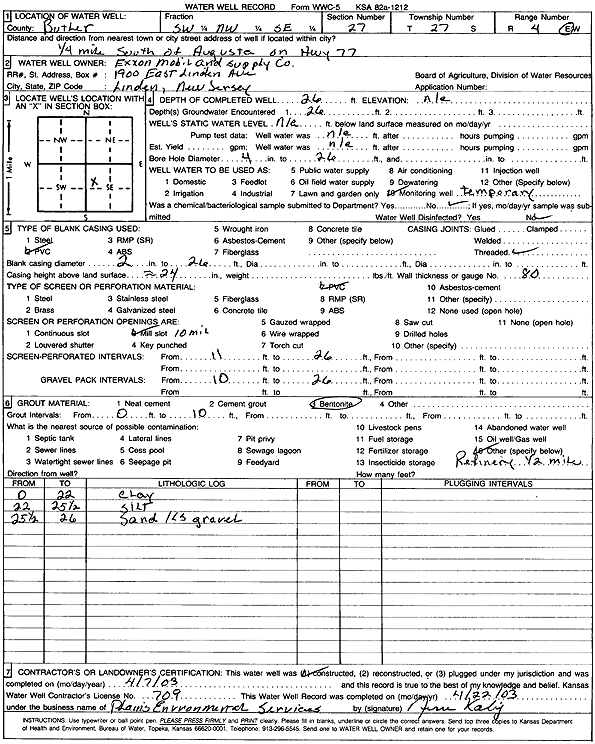 WATER WELL RECORD Form WWC-5 KSA 82a-1212
1 LOCATION OF WATER WELL: Fraction Section Number Township Number Range Number
County: Butler SW ¼ NW ¼ SE ¼ 27 T 27 S R 4 E/W
Distance and direction from nearest town or city street address of well if located within city?
1/4 mile South of Augusta on Hwy 77
2 WATER WELL OWNER: Exxon Mobil and Supply Co.
RR#, St. Address, Box # : 1900 East Linden Ave Board of Agriculture, Division of Water Resources
City, State, ZIP Code : Linden, New Jersey Application Number:
3 LOCATE WELL'S LOCATION WITH AN "X" IN SECTION BOX:
N
NW NE
W E
SW X SE
S
1 Mile
4 DEPTH OF COMPLETED WELL 26 ft. ELEVATION: n/a
Depth(s) Groundwater Encountered 1. 26 ft. 2. ft. 3. ft.
WELL'S STATIC WATER LEVEL n/a ft. below land surface measured on mo/day/yr
Pump test data: Well water was n/a ft. after hours pumping gpm
Est. Yield gpm: Well water was n/a ft. after hours pumping gpm
Bore Hole Diameter 4 in. to 26 ft., and in. to ft.
WELL WATER TO BE USED AS: 5 Public water supply 8 Air conditioning 11 Injection well
1 Domestic 3 Feedlot 6 Oil field water supply 9 Dewatering 12 Other (Specify below)
2 Irrigation 4 Industrial 7 Lawn and garden only 10 Monitoring well temporary
Was a chemical/bacteriological sample submitted to Department? Yes No ✓; If yes, mo/day/yr sample was sub-
mitted Water Well Disinfected? Yes No ✓
5 TYPE OF BLANK CASING USED: 5 Wrought iron 8 Concrete tile CASING JOINTS: Glued Clamped
1 Steel 3 RMP (SR) 6 Asbestos-Cement 9 Other (specify below) Welded
2 PVC 4 ABS 7 Fiberglass Threaded ✓
Blank casing diameter 2 in. to 26 ft., Dia in. to ft., Dia in. to ft.
Casing height above land surface ≈24 in., weight lbs./ft. Wall thickness or gauge No. 80
TYPE OF SCREEN OR PERFORATION MATERIAL: 7 PVC 10 Asbestos-cement
1 Steel 3 Stainless steel 5 Fiberglass 8 RMP (SR) 11 Other (specify)
2 Brass 4 Galvanized steel 6 Concrete tile 9 ABS 12 None used (open hole)
SCREEN OR PERFORATION OPENINGS ARE: 5 Gauzed wrapped 8 Saw cut 11 None (open hole)
1 Continuous slot 3 Mill slot 10 mil 6 Wire wrapped 9 Drilled holes
2 Louvered shutter 4 Key punched 7 Torch cut 10 Other (specify)
SCREEN-PERFORATED INTERVALS: From 11 ft. to 26 ft., From ft. to ft.
From ft. to ft., From ft. to ft.
GRAVEL PACK INTERVALS: From 10 ft. to 26 ft., From ft. to ft.
From ft. to ft., From ft. to ft.
6 GROUT MATERIAL: 1 Neat cement 2 Cement grout 3 Bentonite 4 Other
Grout Intervals: From 0 ft. to 10 ft., From ft. to ft., From ft. to ft.
What is the nearest source of possible contamination: 10 Livestock pens 14 Abandoned water well
1 Septic tank 4 Lateral lines 7 Pit privy 11 Fuel storage 15 Oil well/Gas well
2 Sewer lines 5 Cess pool 8 Sewage lagoon 12 Fertilizer storage 16 Other (specify below)
3 Watertight sewer lines 6 Seepage pit 9 Feedyard 13 Insecticide storage Refinery 1/2 mile
Direction from well? How many feet?
FROM TO LITHOLOGIC LOG FROM TO PLUGGING INTERVALS
0 22 clay
22 25½ silt
25½ 26 Sand gravel
7 CONTRACTOR'S OR LANDOWNER'S CERTIFICATION: This water well was (1) constructed, (2) reconstructed, or (3) plugged under my jurisdiction and was
completed on (mo/day/year) 4/7/03 and this record is true to the best of my knowledge and belief. Kansas
Water Well Contractor's License No. 709 This Water Well Record was completed on (mo/day/yr) 4/22/03
under the business name of Plains Environmental Services by (signature)
INSTRUCTIONS: Use typewriter or ball point pen. PLEASE PRESS FIRMLY and PRINT clearly. Please fill in blanks, underline or circle the correct answers. Send top three copies to Kansas Department
of Health and Environment, Bureau of Water, Topeka, Kansas 66620-0001. Telephone: 913-296-5545. Send one to WATER WELL OWNER and retain one for your records.